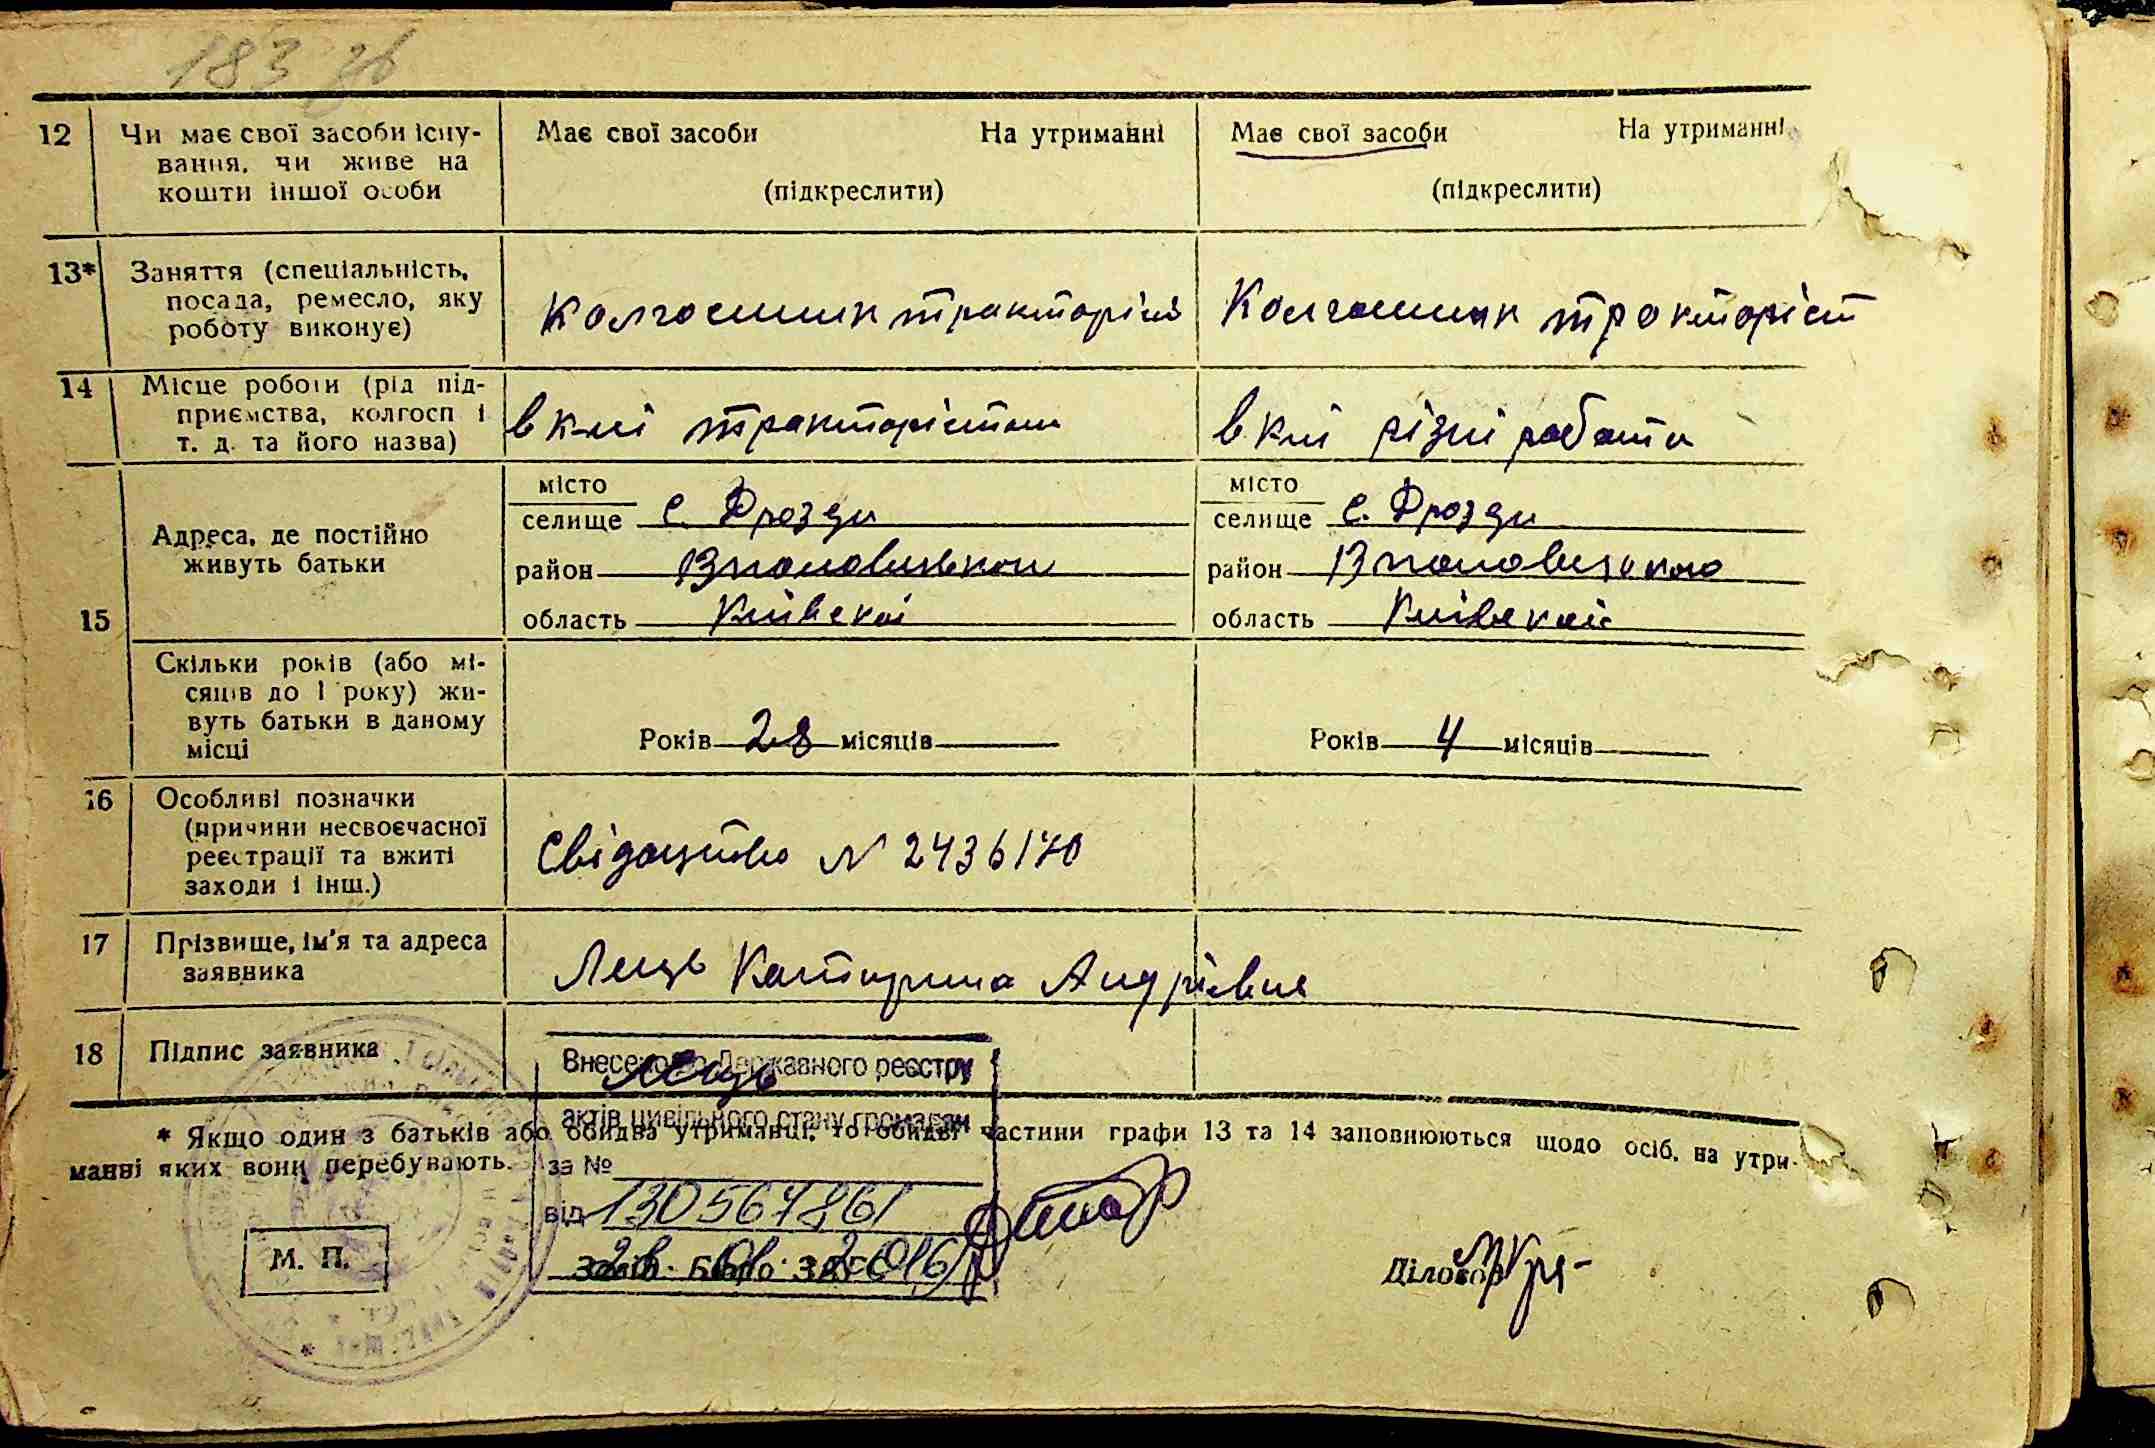 183 зв
12 Чи має свої засоби існу-
вання, чи живе на
кошти іншої особи
Має свої засоби На утриманні
(підкреслити)
Має свої засоби На утриманні
(підкреслити)
13* Заняття (спеціальність,
посада, ремесло, яку
роботу виконує)
Колгоспник тракторист
Колгоспник тракторіст
14 Місце роботи (рід під-
приємства, колгосп і
т. д. та його назва)
в к-пі трактористом
в к-пі різні роботи
15 Адреса, де постійно
живуть батьки
місто
селище с. Дрозди
район
область Київскої
місто
селище с. Дрозди
район
область Київскої
Скільки років (або мі-
сяців до 1 року) жи-
вуть батьки в даному
місці
Років 28 місяців
Років 4 місяців
16 Особливі позначки
(причини несвоєчасної
реєстрації та вжиті
заходи і інш.)
Свідоцтво N 2436170
17 Прізвище, ім'я та адреса
заявника
Лець Катирина Андрівна
18 Підпис заявника
Лець
Внесено до Державного реєстру
актів цивільного стану громадян
за №
від 130567861
* Якщо один з батьків або обидва утриманці, то обидві частини графи 13 та 14 заповнюються щодо осіб, на утри-
манні яких вони перебувають.
М. П.
Діловод